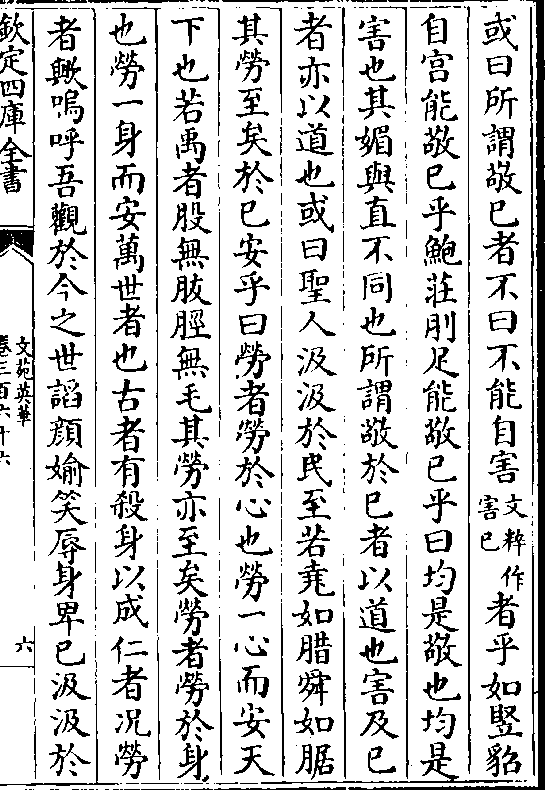 或曰所謂敬已者不曰不能自害文粹作害已者乎如竪貂
自宫能敬已乎鮑莊刖足能敬已乎曰均是敬也均是
害也其媚與直不同也所謂敬於已者以道也害及已
者亦以道也或曰聖人汲汲於民至若堯如腊舜如腒
其勞至矣於已安乎曰勞者勞於心也勞一心而安天
下也若禹者股無胈脛無毛其勞亦至矣勞者勞於身
也勞一身而安萬世者也古者有殺身以成仁者况勞
者歟嗚呼吾觀於今之世謟顔婾笑辱身卑已汲汲於
欽定四庫全書
文苑英華
卷三百六十六
六